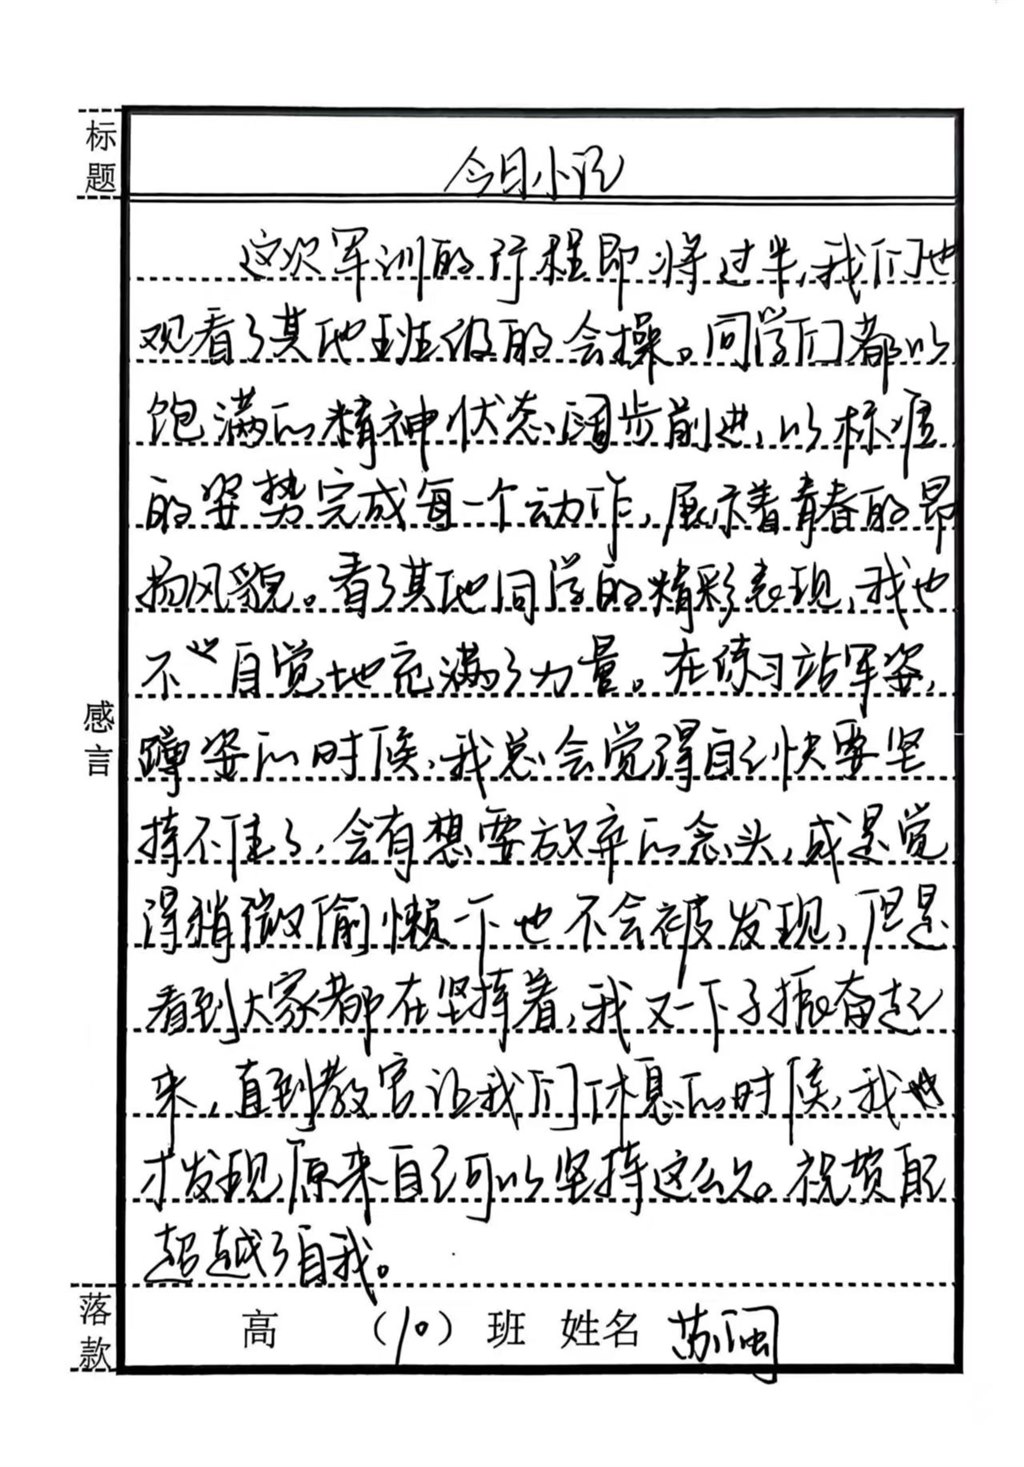 标题
今日小记
这次军训的行程即将过半，我们也
观看了其他班级的会操。同学们都以
饱满的精神状态阔步前进，以标准
的姿势完成每一个动作，展示着青春的昂
扬风貌。看了其他同学的精彩表现，我也
不心自觉地充满了力量。在练习站军姿，
蹲姿的时候，我总会觉得自己快要坚
持不住了，会有想要放弃的念头，或是觉
得稍微偷懒一下也不会被发现，但是
看到大家都在坚持着，我又一下子振奋起
来，直到教官让我们休息的时候，我也
才发现原来自己可以坚持这么久。祝贺自己
超越了自我。
感言
落款
高 （10）班 姓名 苏闽